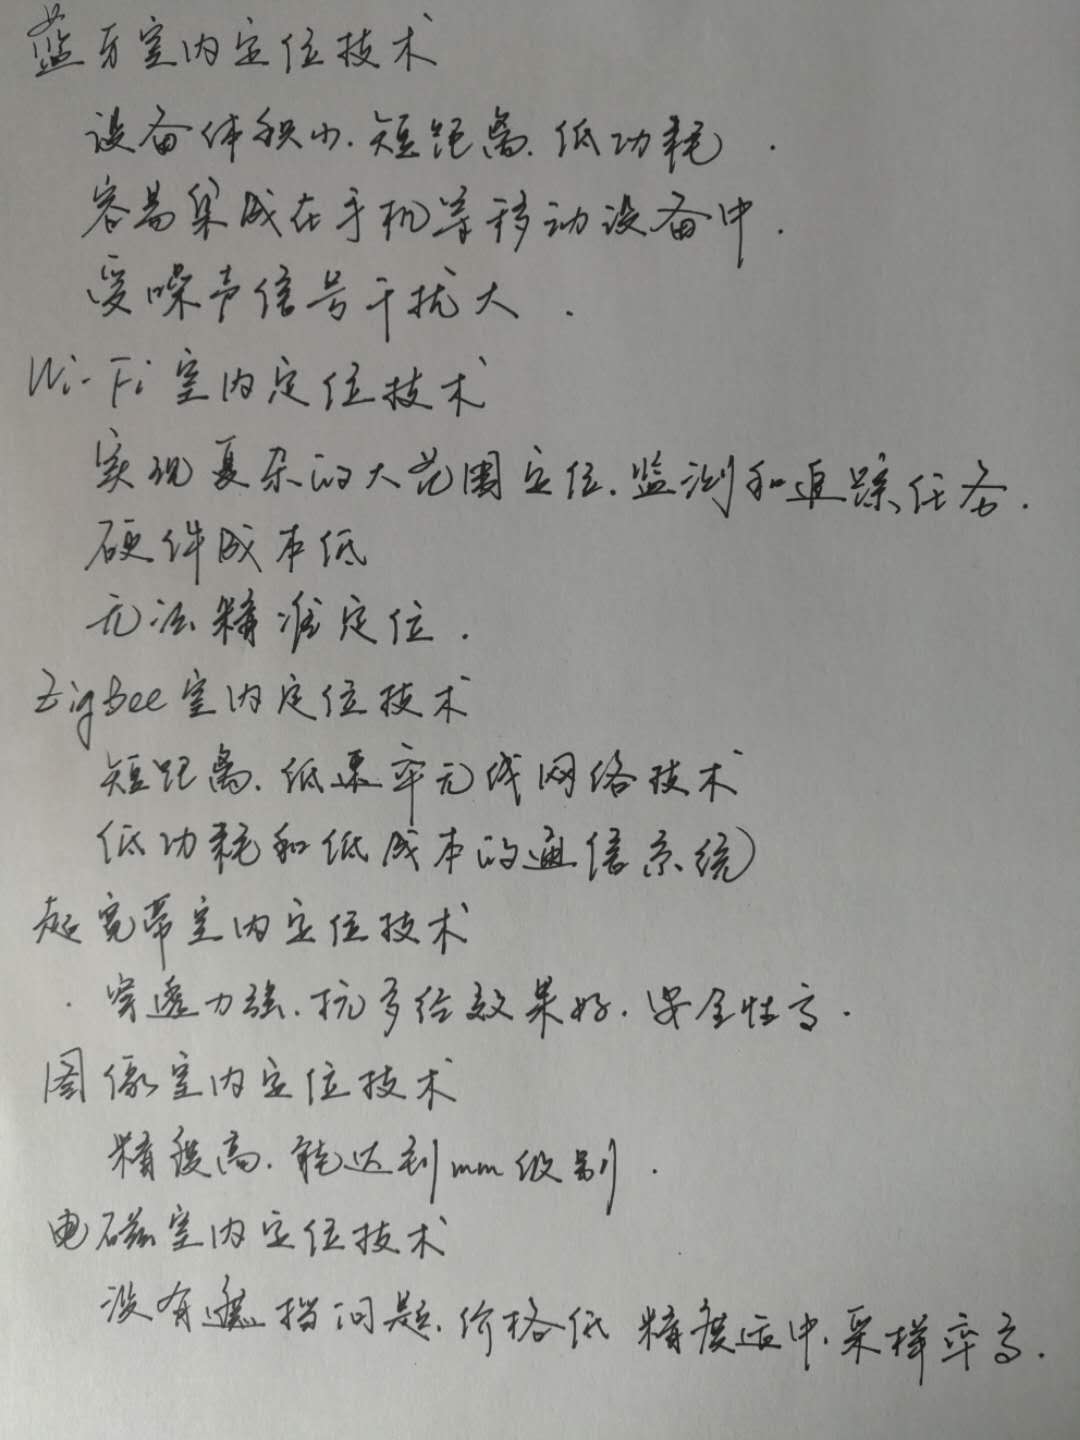 蓝牙室内定位技术
设备体积小、短距离、低功耗.
容易集成在手机等移动设备中.
受噪声信号干扰大.
Wi-Fi室内定位技术
实现复杂的大范围定位、监测和追踪任务.
硬件成本低
无法精准定位.
Zigbee室内定位技术
短距离、低速率无线网络技术
低功耗和低成本的通信系统
超宽带室内定位技术
穿透力强、抗多径效果好、安全性高.
图像室内定位技术
精度高、能达到mm级别.
电磁室内定位技术
没有遮挡问题、价格低 精度适中、采样率高.